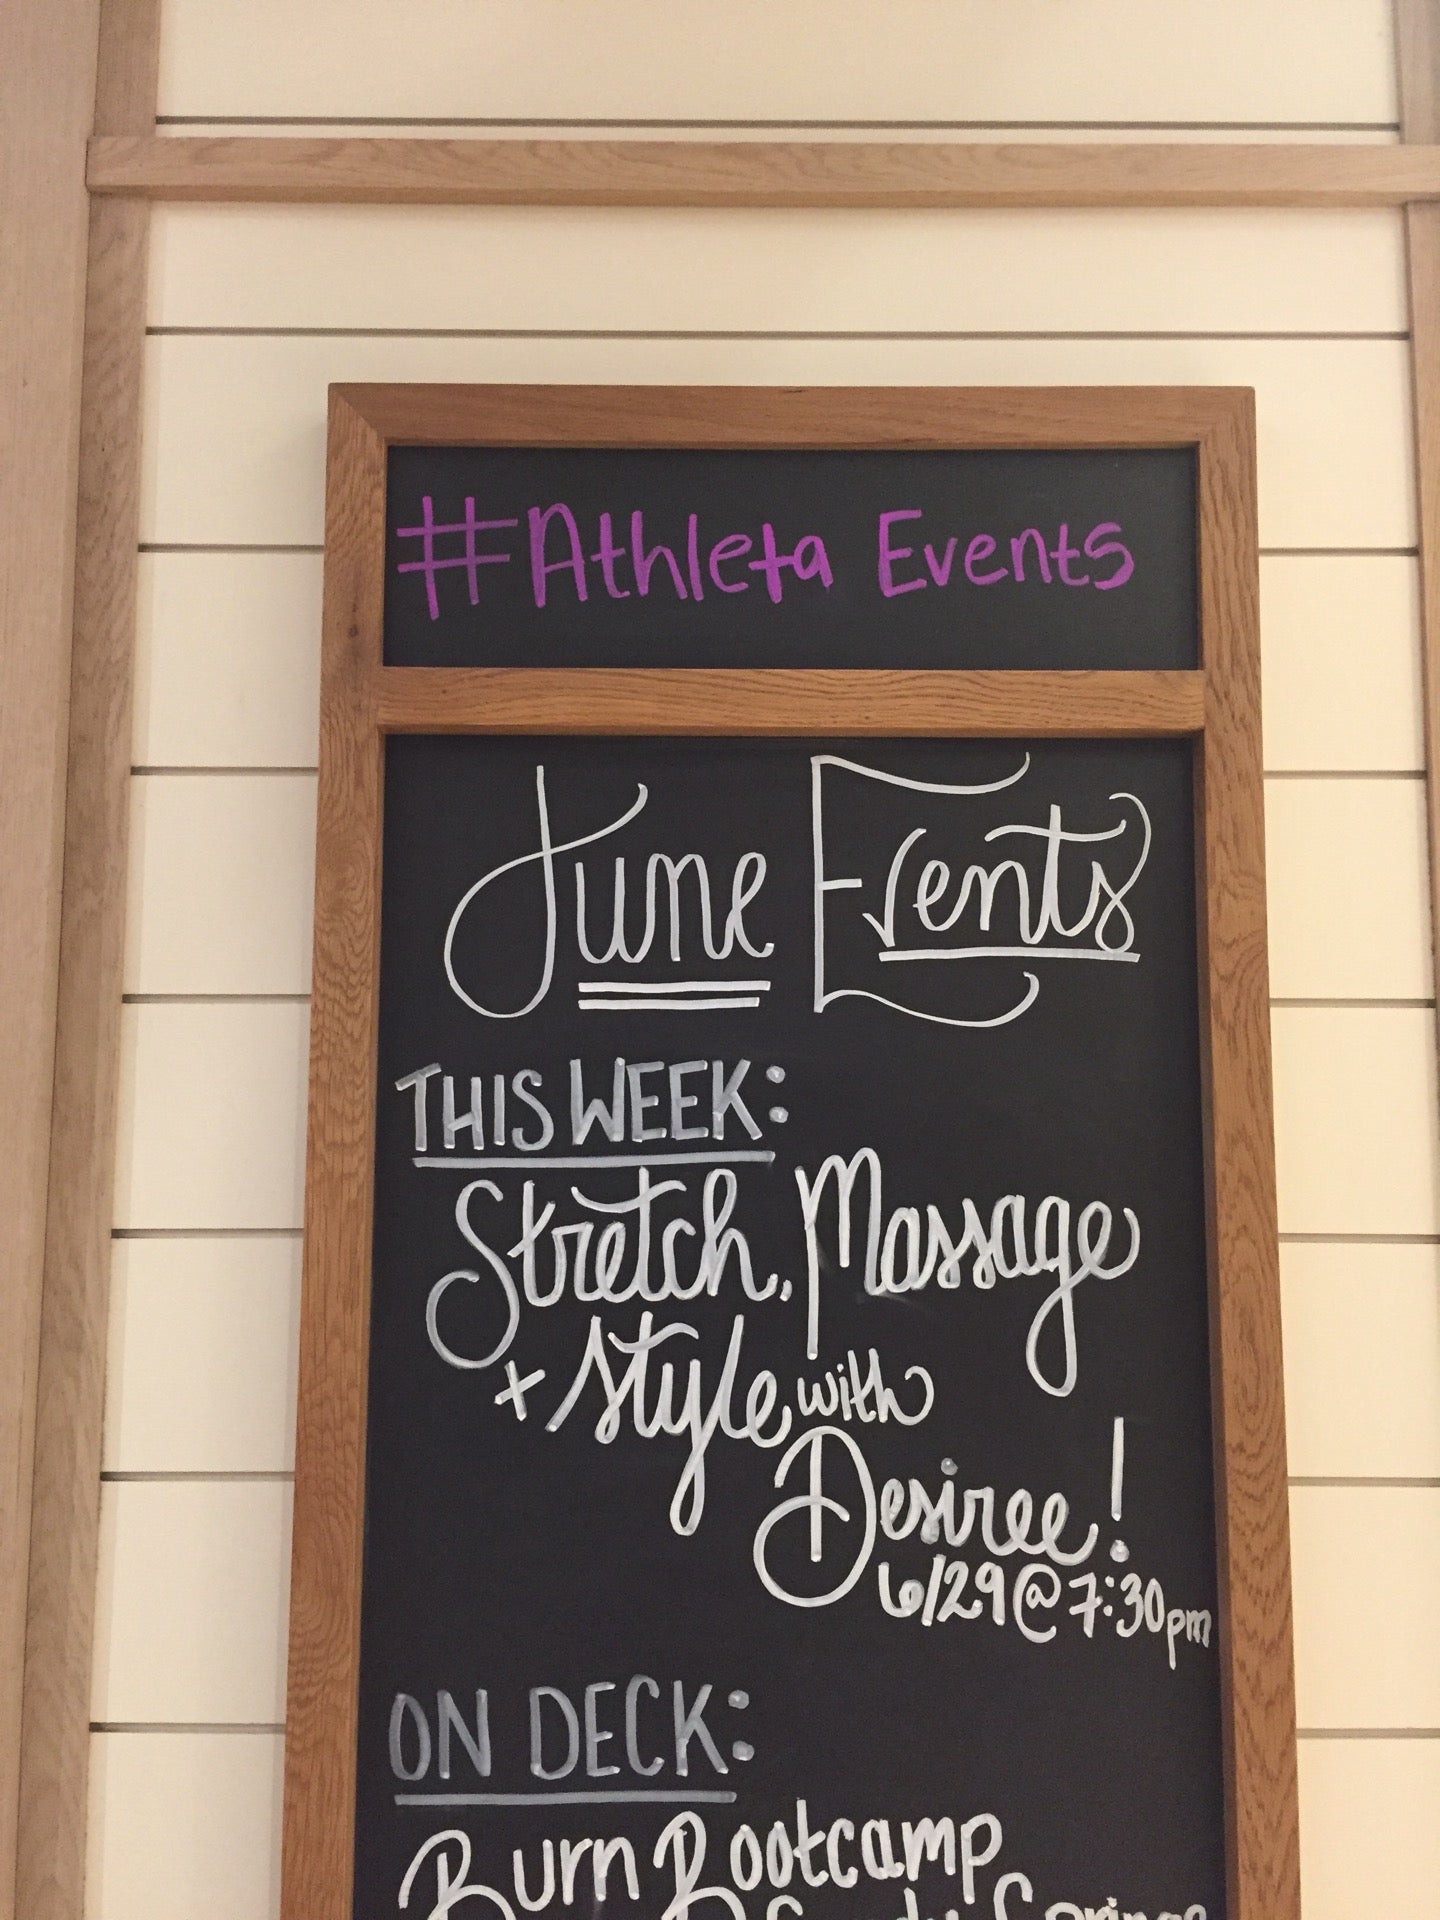 #Athleta Events
June Events
THIS WEEK:
Stretch, Massage
+ Style with
Desiree!
6/29@7:30pm
ON DECK:
Burn Bootcamp